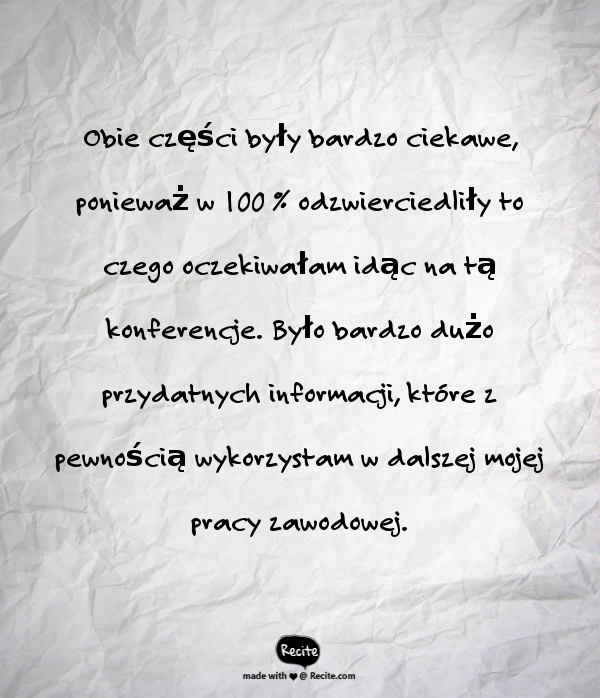 Obie części były bardzo ciekawe,
ponieważ w 100 % odzwierciedliły to
czego oczekiwałam idąc na tą
konferencje. Było bardzo dużo
przydatnych informacji, które z
pewnością wykorzystam w dalszej mojej
pracy zawodowej.
Recite
made with ♥ @ Recite.com